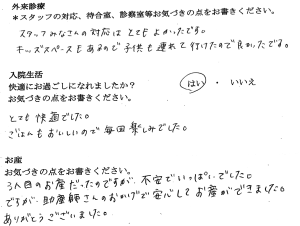 外来診療
＊スタッフの対応、待合室、診察室等お気づきの点をお書きください。
スタッフみなさんの対応はとてもよかったです。
キッズスペースもあるので子供も連れて行けたので良かたでる。
入院生活
快適にお過ごしになれましたか？ はい ・ いいえ
お気づきの点をお書きください。
とても快適でした。
ごはんもおいしいので毎回楽しみでした。
お産
お気づきの点をお書きください。
3人目のお産だったのですが、不安でいっぱいでした。
ですが、助産師さんのおかげで安心してお産ができました。
ありがとうございました。